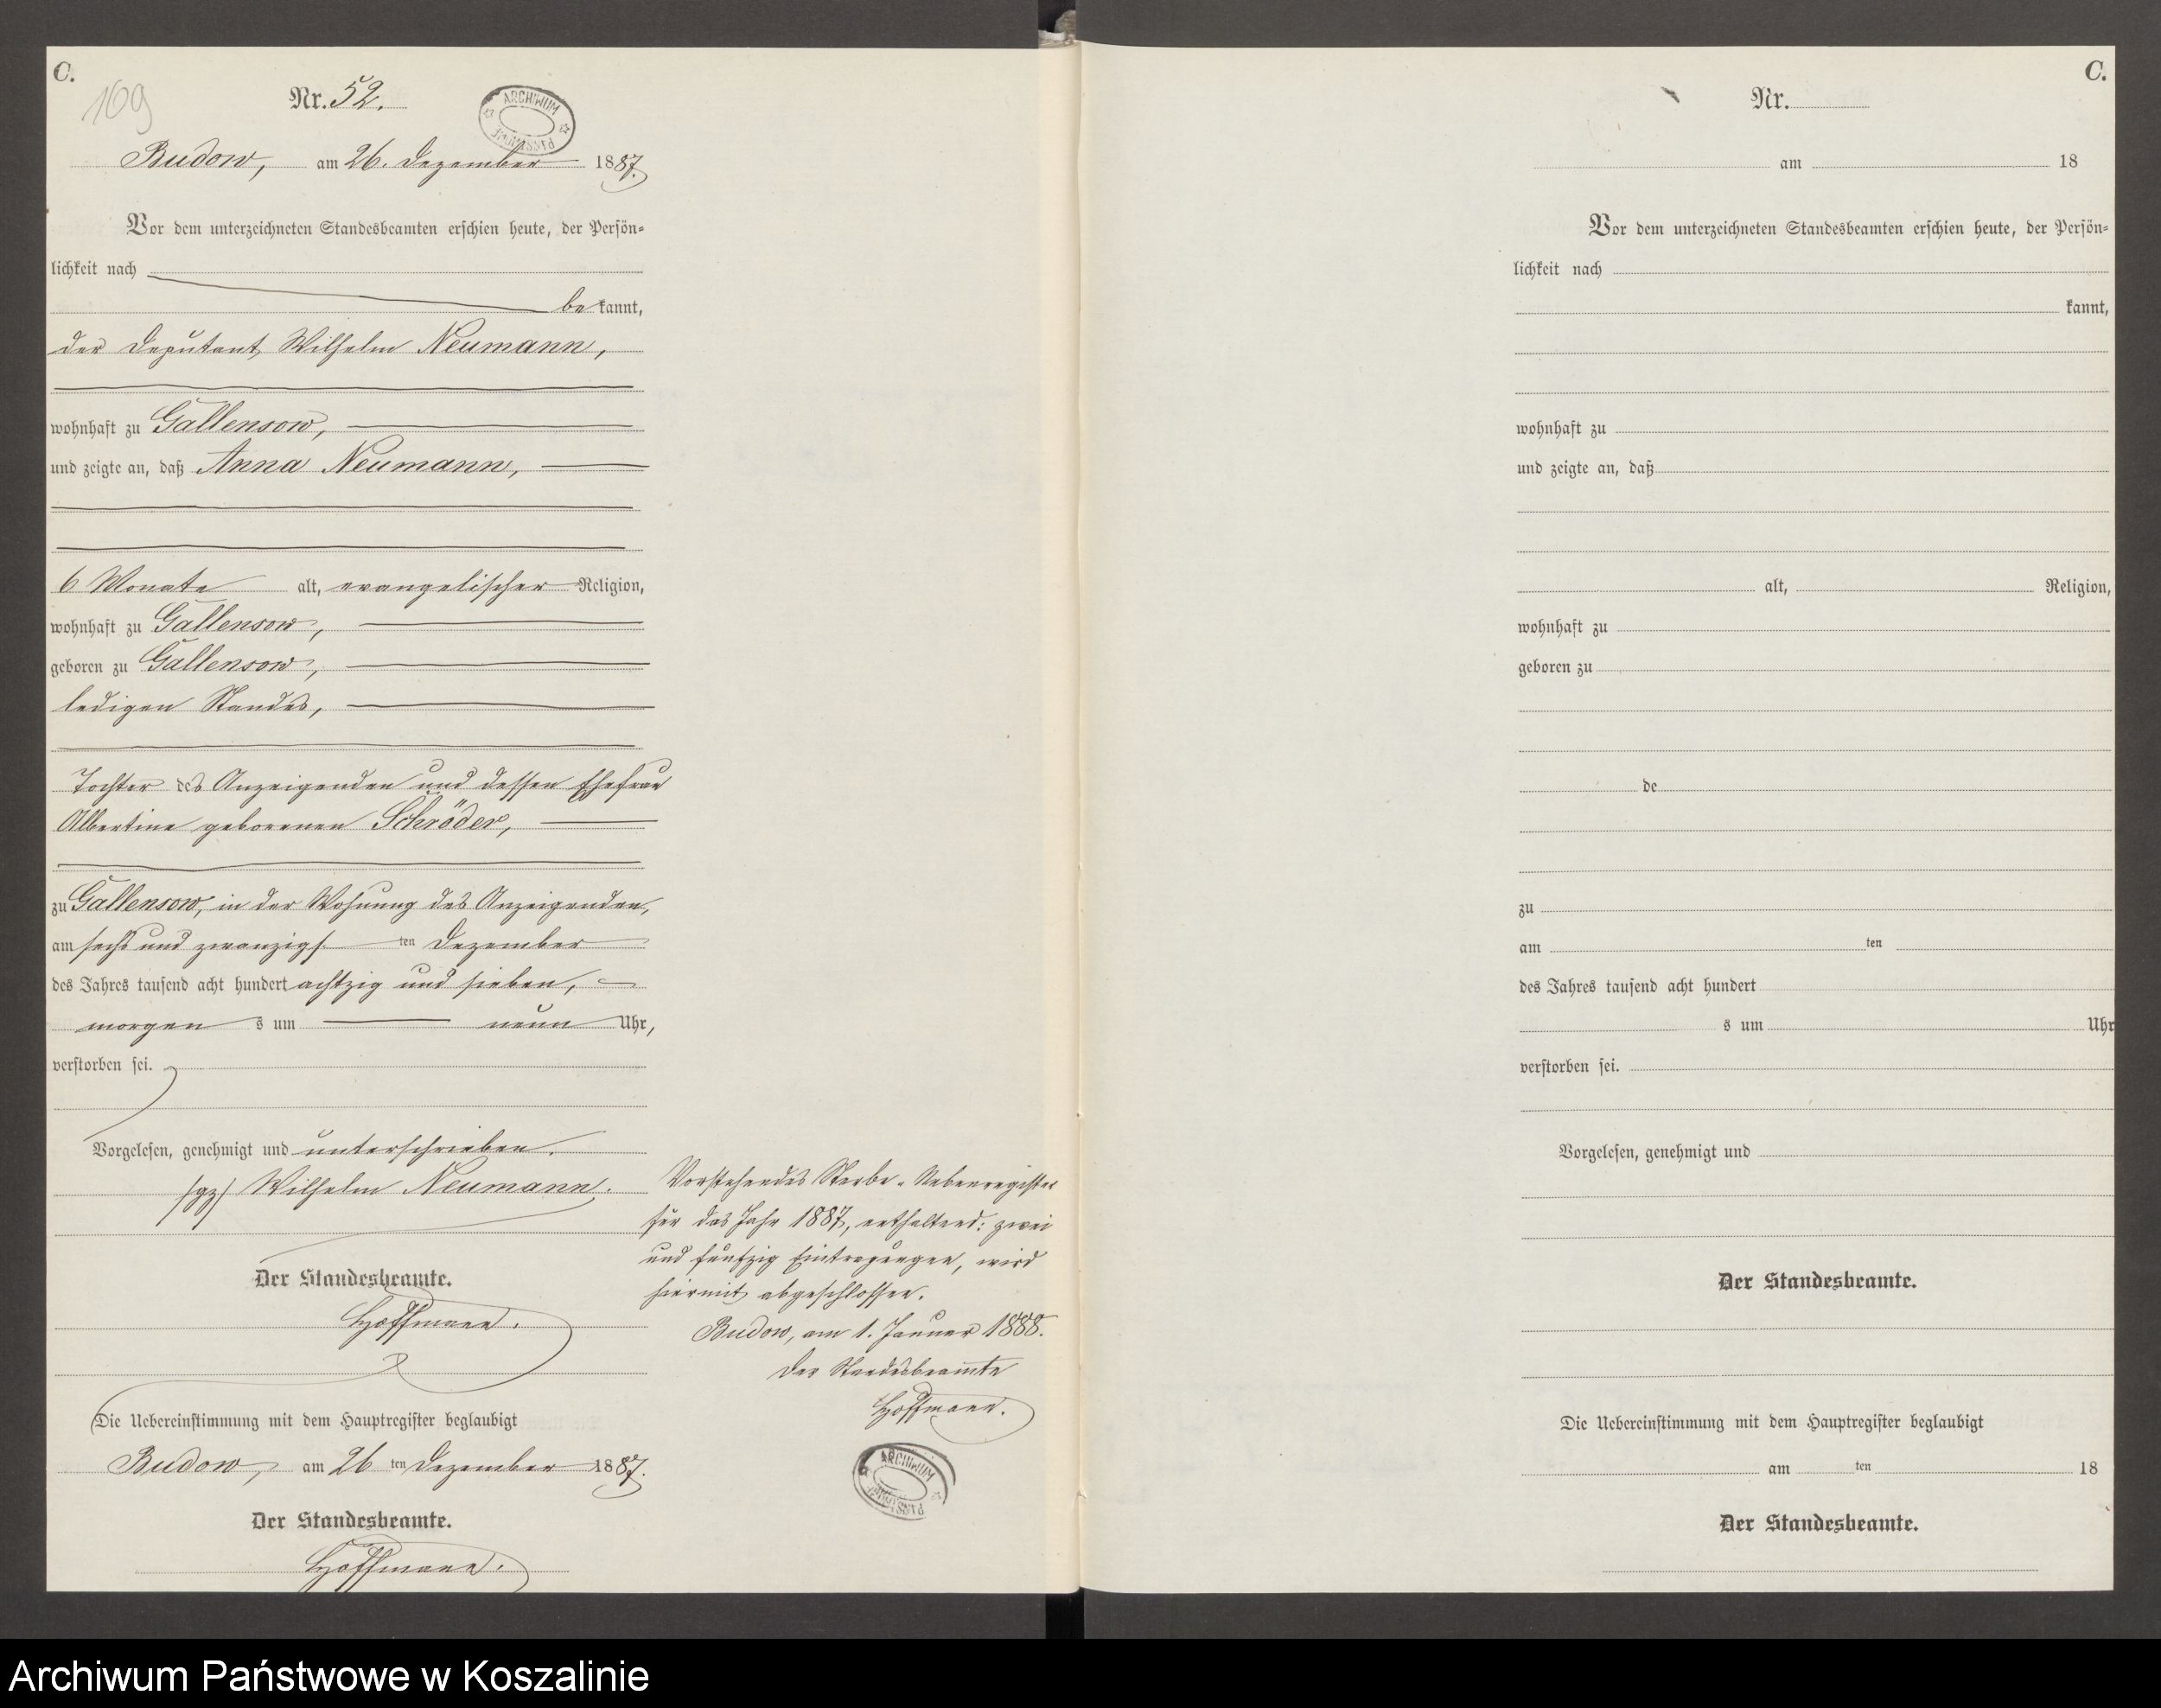 C.
109
Nr. 52.
ARCHIWUM
PAŃSTWOWE
Budow, am 26. Dezember 1887.
Vor dem unterzeichneten Standesbeamten erschien heute, der Persön-
lichkeit nach
be kannt,
der Deputant Wilhelm Neumann,
wohnhaft zu Gallensow,
und zeigte an, daß Anna Neumann,
6 Monate alt, evangelischer Religion,
wohnhaft zu Gallensow,
geboren zu Gallensow,
ledigen Standes,
Tochter des Anzeigenden und dessen Ehefrau
Albertine geborenen Schröder,
zu Gallensow, in der Wohnung des Anzeigenden,
am sechs und zwanzigs ten Dezember
des Jahres tausend acht hundert achtzig und sieben,
morgen s um neun Uhr,
verstorben sei.
Vorgelesen, genehmigt und unterschrieben.
/gz/ Wilhelm Neumann.
Der Standesbeamte.
Hoffmann.
Die Uebereinstimmung mit dem Hauptregister beglaubigt
Budow, am 26 ten Dezember 1887.
Der Standesbeamte.
Hoffmann.
Vorstehendes Sterbe-Nebenregister
für das Jahr 1887, enthaltend: zwei
und fünfzig Eintragungen, wird
hiermit abgeschlossen.
Budow, am 1. Januar 1888.
Der Standesbeamte
Hoffmann.
ARCHIWUM
PAŃSTWOWE
C.
Nr.
am 18
Vor dem unterzeichneten Standesbeamten erschien heute, der Persön-
lichkeit nach
kannt,
wohnhaft zu
und zeigte an, daß
alt, Religion,
wohnhaft zu
geboren zu
de
zu
am ten
des Jahres tausend acht hundert
s um Uhr
verstorben sei.
Vorgelesen, genehmigt und
Der Standesbeamte.
Die Uebereinstimmung mit dem Hauptregister beglaubigt
am ten 18
Der Standesbeamte.
Archiwum Państwowe w Koszalinie